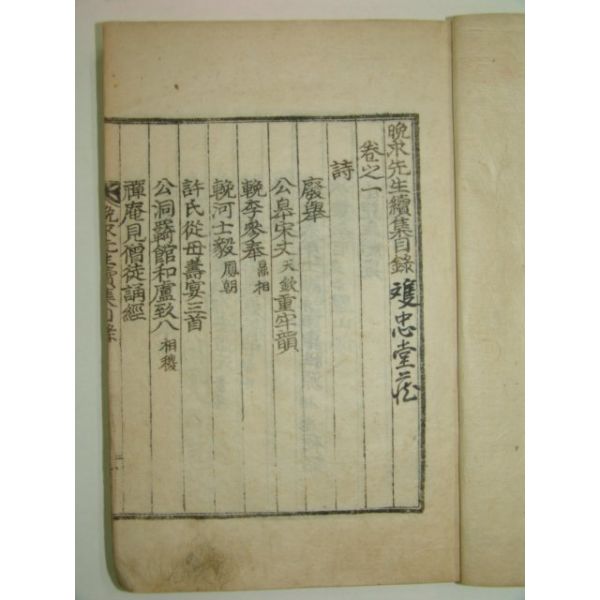 晩求先生續集目錄 雙忠堂藏
卷之一
詩
廢舉
公皐宋丈 天欽 重牢韻
輓李參奉 鼎相
輓河士毅 鳳朝
許氏從母壽宴三首
公洞爵館和盧致八 相稷
禪庵見僧徒誦經
晩求先生續集目錄